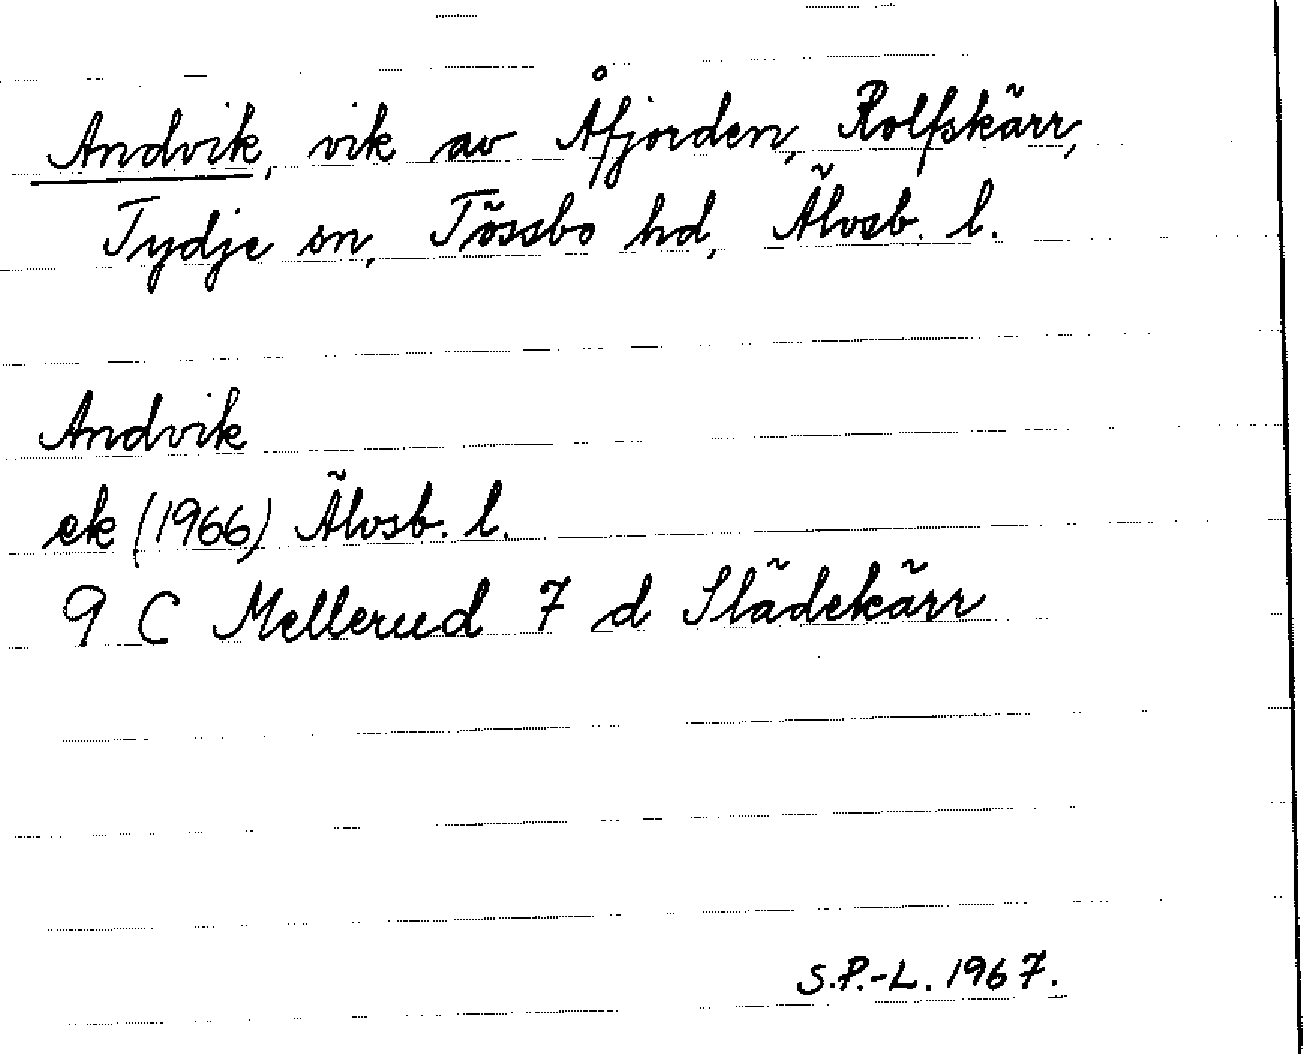 Andvik, vik av Åfjorden, Rolfskärr,
Tydje sn, Tössbo hd, Älvsb. l.
Andvik
ek (1966) Älvsb. l.
9 C Mellerud 7 d Slädekärr
S.P.-L. 1967.